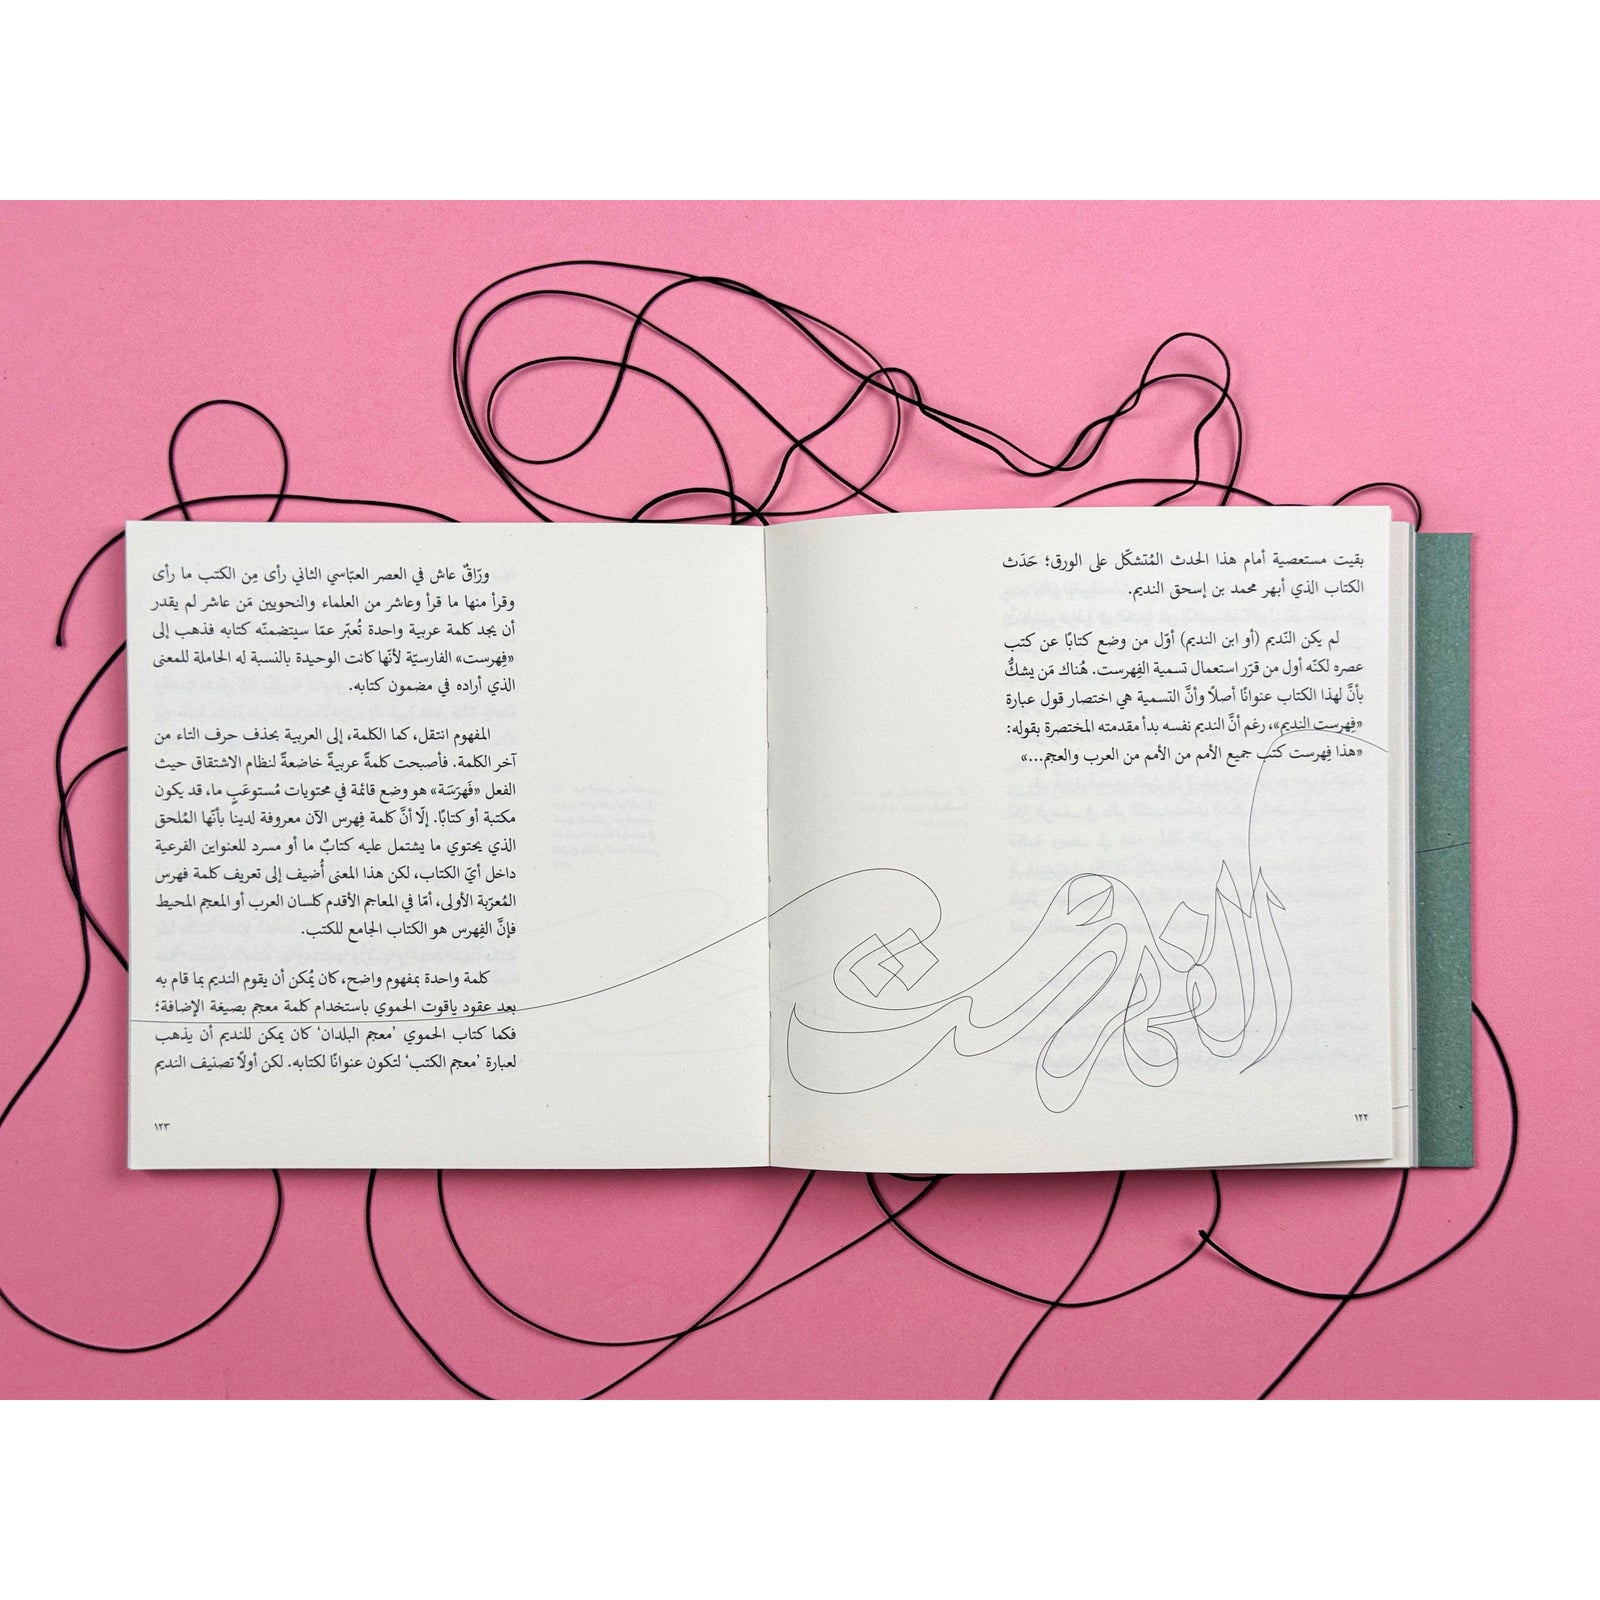 بقيت مستعصية أمام هذا الحدث المُتشكّل على الورق؛ حَدَث
الكتاب الذي أبهر محمد بن إسحق النديم.
لم يكن النّديم (أو ابن النديم) أوّل من وضع كتابًا عن كتب
عصره لكنّه أول من قرّر استعمال تسمية الفِهرست. هُناك مَن يشكُّ
بأنَّ لهذا الكتاب عنوانًا أصلًا وأنَّ التسمية هي اختصار قول عبارة
«فِهرست النديم»، رغم أنَّ النديم نفسه بدأ مقدمته المختصرة بقوله:
«هذا فِهرست كتب جميع الأمم من الأمم من العرب والعجم...»
الفهرست
١٢٢
ورّاقٌ عاش في العصر العبّاسي الثاني رأى مِن الكتب ما رأى
وقرأ منها ما قرأ وعاشر من العلماء والنحويين مَن عاشر لم يقدر
أن يجد كلمة عربية واحدة تُعبّر عمّا سيتضمنّه كتابه فذهب إلى
«فِهرست» الفارسيّة لأنّها كانت الوحيدة بالنسبة له الحاملة للمعنى
الذي أراده في مضمون كتابه.
المفهوم انتقل، كما الكلمة، إلى العربية بحذف حرف التاء من
آخر الكلمة. فأصبحت كلمةً عربيةً خاضعةً لنظام الاشتقاق حيث
الفعل «فَهرَسَة» هو وضع قائمة في محتويات مُستوعَبٍ ما، قد يكون
مكتبة أو كتابًا. إلّا أنَّ كلمة فِهرس الآن معروفة لدينا بأنّها المُلحق
الذي يحتوي ما يشتمل عليه كتابٌ ما أو مسرد للعنواين الفرعية
داخل أيّ الكتاب، لكن هذا المعنى أُضيف إلى تعريف كلمة فهرس
المُعرّبة الأولى، أمّا في المعاجم الأقدم كلسان العرب أو المعجم المحيط
فإنَّ الفِهرس هو الكتاب الجامع للكتب.
كلمة واحدة بمفهوم واضح، كان يُمكن أن يقوم النديم بما قام به
بعد عقود ياقوت الحموي باستخدام كلمة معجم بصيغة الإضافة؛
فكما كتاب الحموي ’معجم البلدان‘ كان يمكن للنديم أن يذهب
لعبارة ’معجم الكتب‘ لتكون عنوانًا لكتابه. لكن أولًا تصنيف النديم
١٢٣